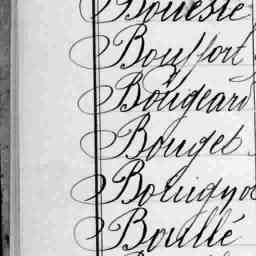 Bouëste
Bouffort
Bougeard
Bouget
Bouignot
Boullé